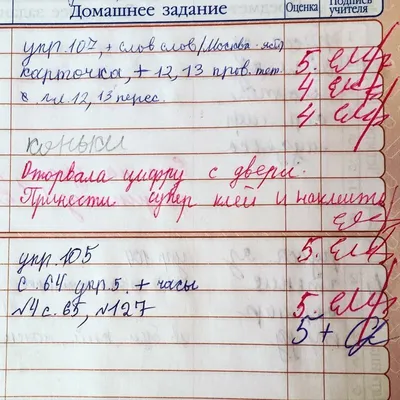 Домашнее задание Оценка Подпись учителя
упр. 107, + слов слов/Москва 5.
карточка, + 12, 13 пров. тет. 4
с гл. 12, 13 перес. 4.
коньки
Оторвала цифру с двери.
Принести супер клей и наклеить
упр. 105 5.
с 64 упр. 5. + часы
№4 с. 65, №127 5.
5+